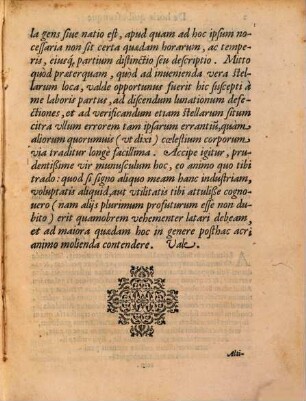 la gens siue natio est, apud quam ad hoc ipsum ne-
cessaria non sit certa quadam horarum, ac tempe-
ris, eiusq́, partium distinctio seu descriptio. Mitto
quòd præterquam, quòd ad inuenienda vera stel-
larum loca, valde opportunus fuerit hic suscepti à
me laboris partus, ad discendum lunationum defe-
ctiones, et ad verificandum etiam stellarum situm
citra vllum errorem tam ipsarum errantiũ, quàm
aliorum quorumuis (vt dixi) cœlestium corporum
via traditur longè facillima. Accipe igitur, pru-
dentissime vir munusculum hoc, eo animo quo tibi
trado: quod si signo aliquo meam hanc industriam,
voluptatis aliquid, aut vtilitatis tibi attulisse cogno-
uero (nam alijs plurimum profuturum esse non du-
bito) erit quamobrem vehementer lætari debeam,
et ad maiora quadam hoc in genere posthac acri
animo molienda contendere. Vale.
Alti-